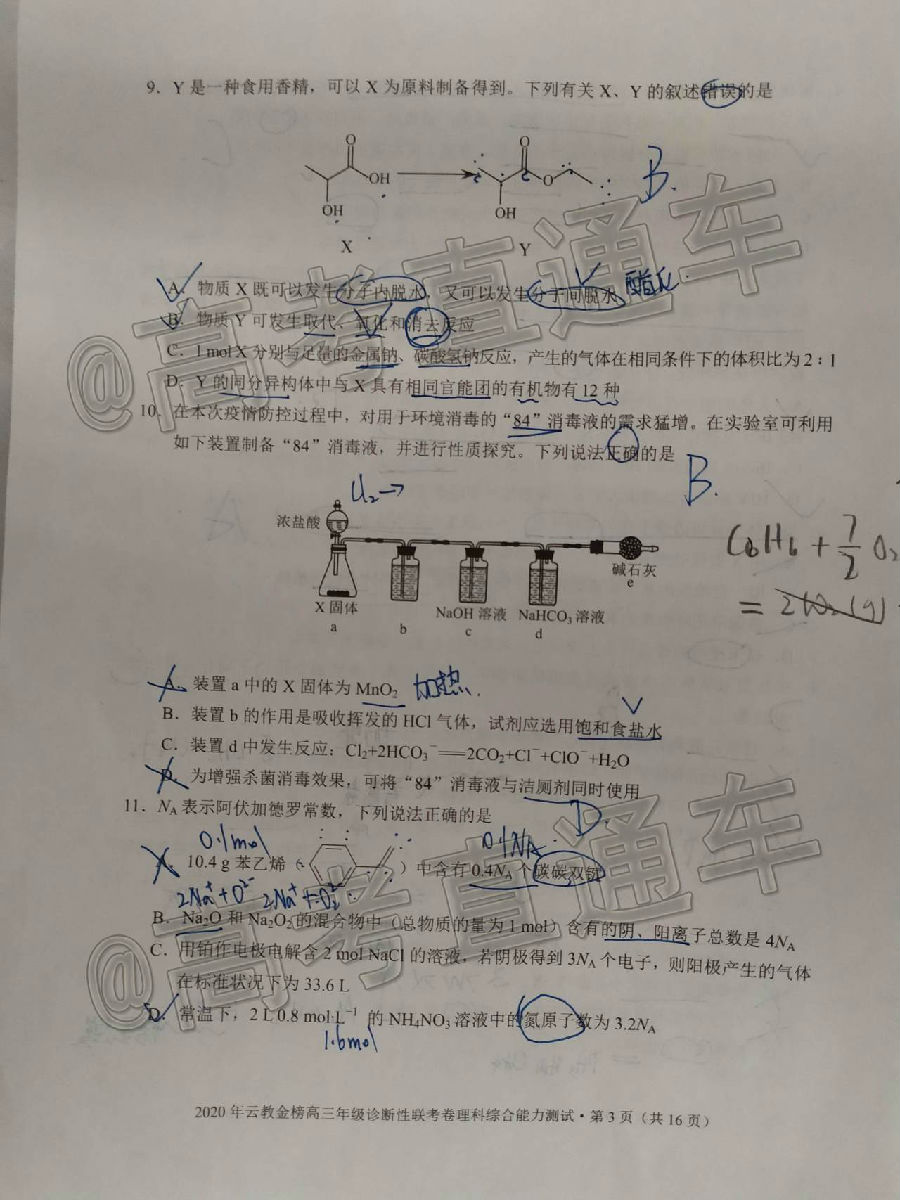 9．Y 是一种食用香精，可以 X 为原料制备得到。下列有关 X、Y 的叙述错误的是
O
OH
OH
X
O
O
OH
Y
B.
A．物质 X 既可以发生分子内脱水，又可以发生分子间脱水 酯化
B．物质 Y 可发生取代、氧化和消去反应
C．1 mol X 分别与足量的金属钠、碳酸氢钠反应，产生的气体在相同条件下的体积比为 2∶1
D．Y 的同分异构体中与 X 具有相同官能团的有机物有 12 种
10．在本次疫情防控过程中，对用于环境消毒的“84”消毒液的需求猛增。在实验室可利用
如下装置制备“84”消毒液，并进行性质探究。下列说法正确的是
B.
Cl₂→
浓盐酸
X 固体
a
b
NaOH 溶液
c
NaHCO₃ 溶液
d
碱石灰
e
C₆H₆ + 7/2 O₂
= 2CO₂(g)
A．装置 a 中的 X 固体为 MnO₂ 加热.
B．装置 b 的作用是吸收挥发的 HCl 气体，试剂应选用饱和食盐水
C．装置 d 中发生反应：Cl₂+2HCO₃⁻══2CO₂+Cl⁻+ClO⁻+H₂O
D．为增强杀菌消毒效果，可将“84”消毒液与洁厕剂同时使用
11．Nᴀ 表示阿伏加德罗常数，下列说法正确的是
D.
0.1mol
0.1NA.
A．10.4 g 苯乙烯（ ）中含有 0.4Nᴀ 个碳碳双键
2Na⁺+O²⁻ 2Na⁺+O₂²⁻
B．Na₂O 和 Na₂O₂ 的混合物中（总物质的量为 1 mol）含有的阴、阳离子总数是 4Nᴀ
C．用铂作电极电解含 2 mol NaCl 的溶液，若阴极得到 3Nᴀ 个电子，则阳极产生的气体
在标准状况下为 33.6 L
D．常温下，2 L 0.8 mol·L⁻¹ 的 NH₄NO₃ 溶液中的氮原子数为 3.2Nᴀ
1.6mol
2020 年云教金榜高三年级诊断性联考卷理科综合能力测试·第 3 页（共 16 页）
@高考直通车
@高考直通车